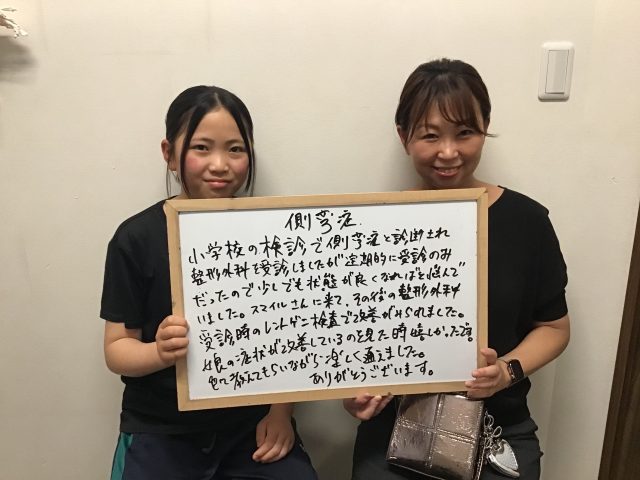 側弯症
小学校の検診で側弯症と診断され
整形外科を受診しましたが定期的に受診のみ
だったので少しでも状態が良くなればと悩んで
いました。スマイルさんに来て、その後の整形外科
受診時のレントゲン検査で改善がみられました。
娘の症状が改善しているのを見た時嬉しかったです。
色々教えてもらいながら楽しく通えました。
ありがとうございます。